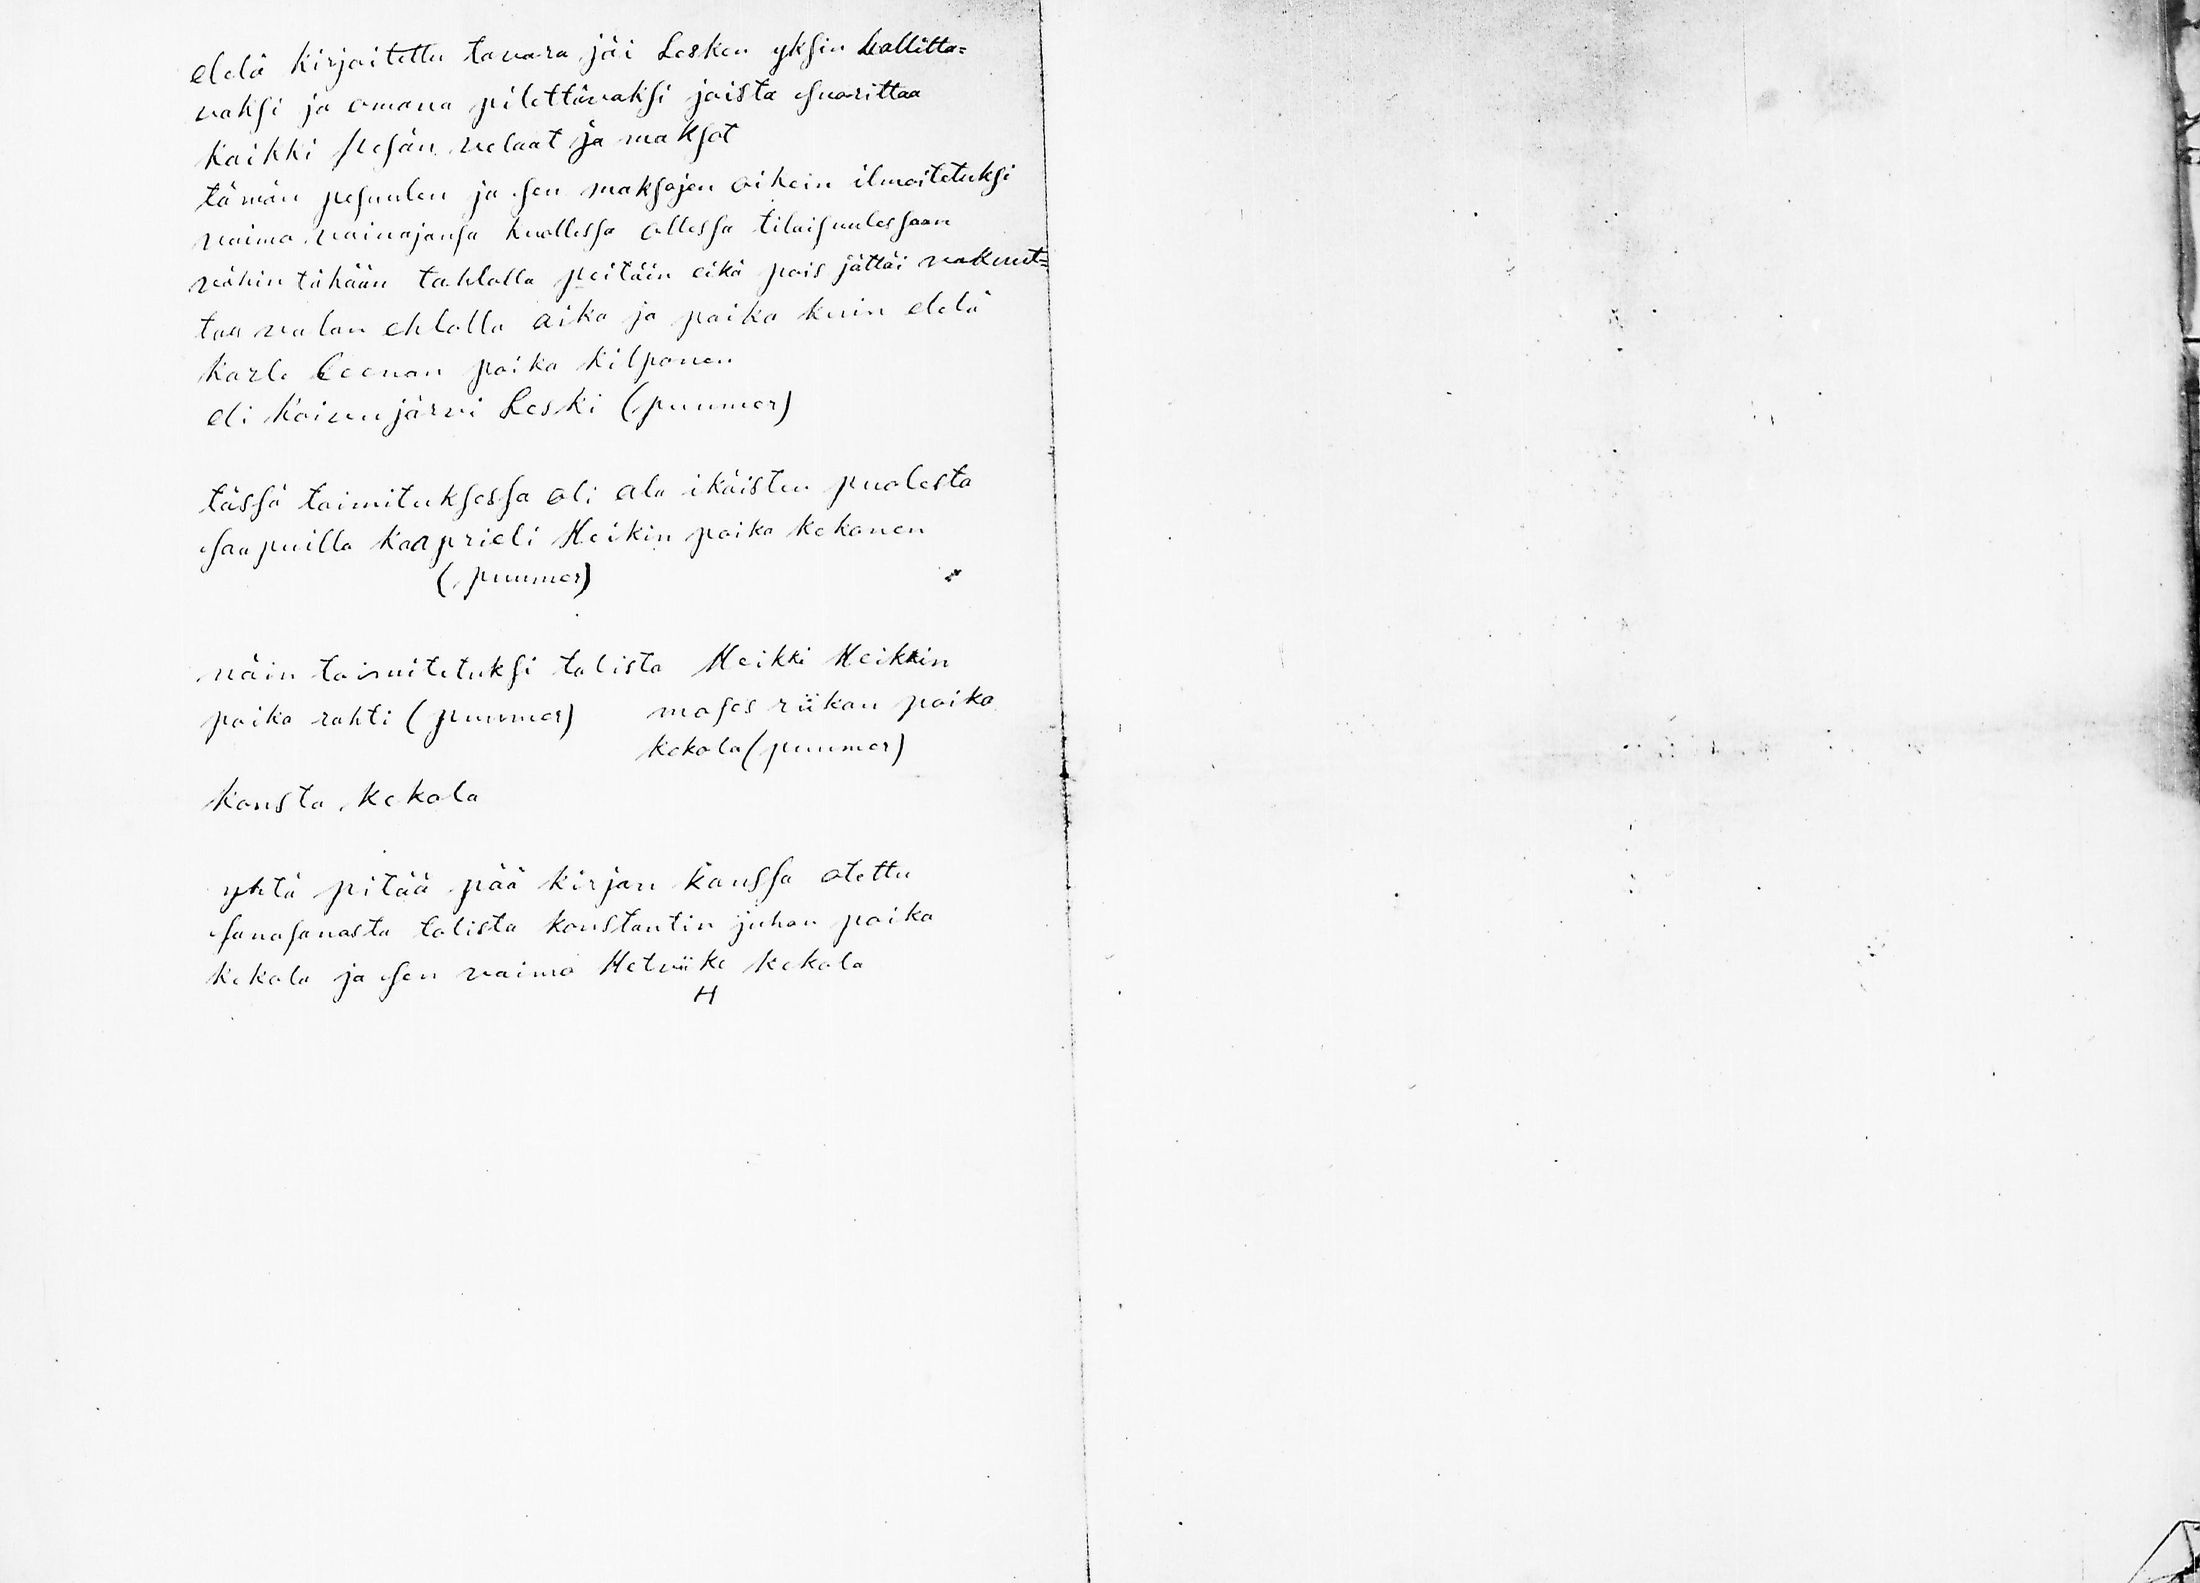 edelä kirjoitettu tavara jäi Lesken yksin hallitta=
vaksi ja omana pitettävaksi joista suorittaa
kaikki pesän velaat ja maksot
tämän pesuulen ja sen maksojen oikein ilmoitetuksi
vaimo vainajansa kuollessa ollessa tilaisuulessaan
nähin tähään tahlolla peitäin eikä pois jättäi vakuut=
taa valan ehlolla aika ja paika kuin edelä
karle Leenan poika kilponen
eli koivunjärvi Leski (puumer)
tässä toimituksessa oli ala ikäisten puolesta
saapuilla kaaprieli Heikin poika kekonen
(puumer)
näin toimitetuksi tolista Heikki Heikkin
poika rahti (puumer) moses riikan poika
kekola (puumer)
konsta kekola
yhtä pitää pää kirjan kanssa otettu
sanasanasta tolista konstantin juhon poika
kekola ja sen vaimo Hetviike kekola
H